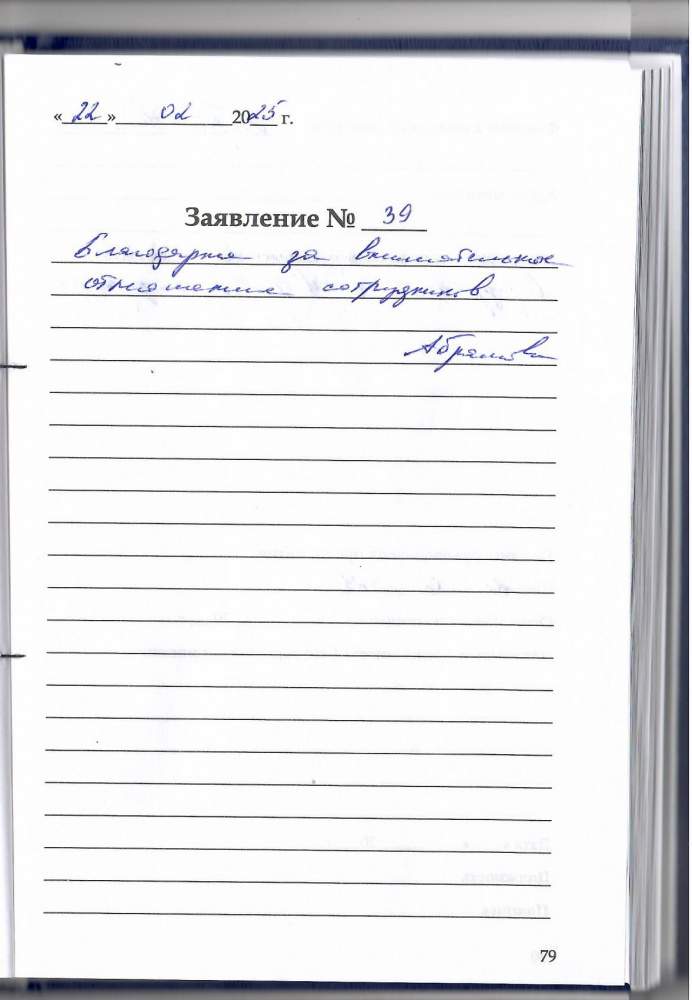 «22» 02 2025 г.
Заявление № 39
Благодарна за внимательное
отношение сотрудников
Абрамова
79